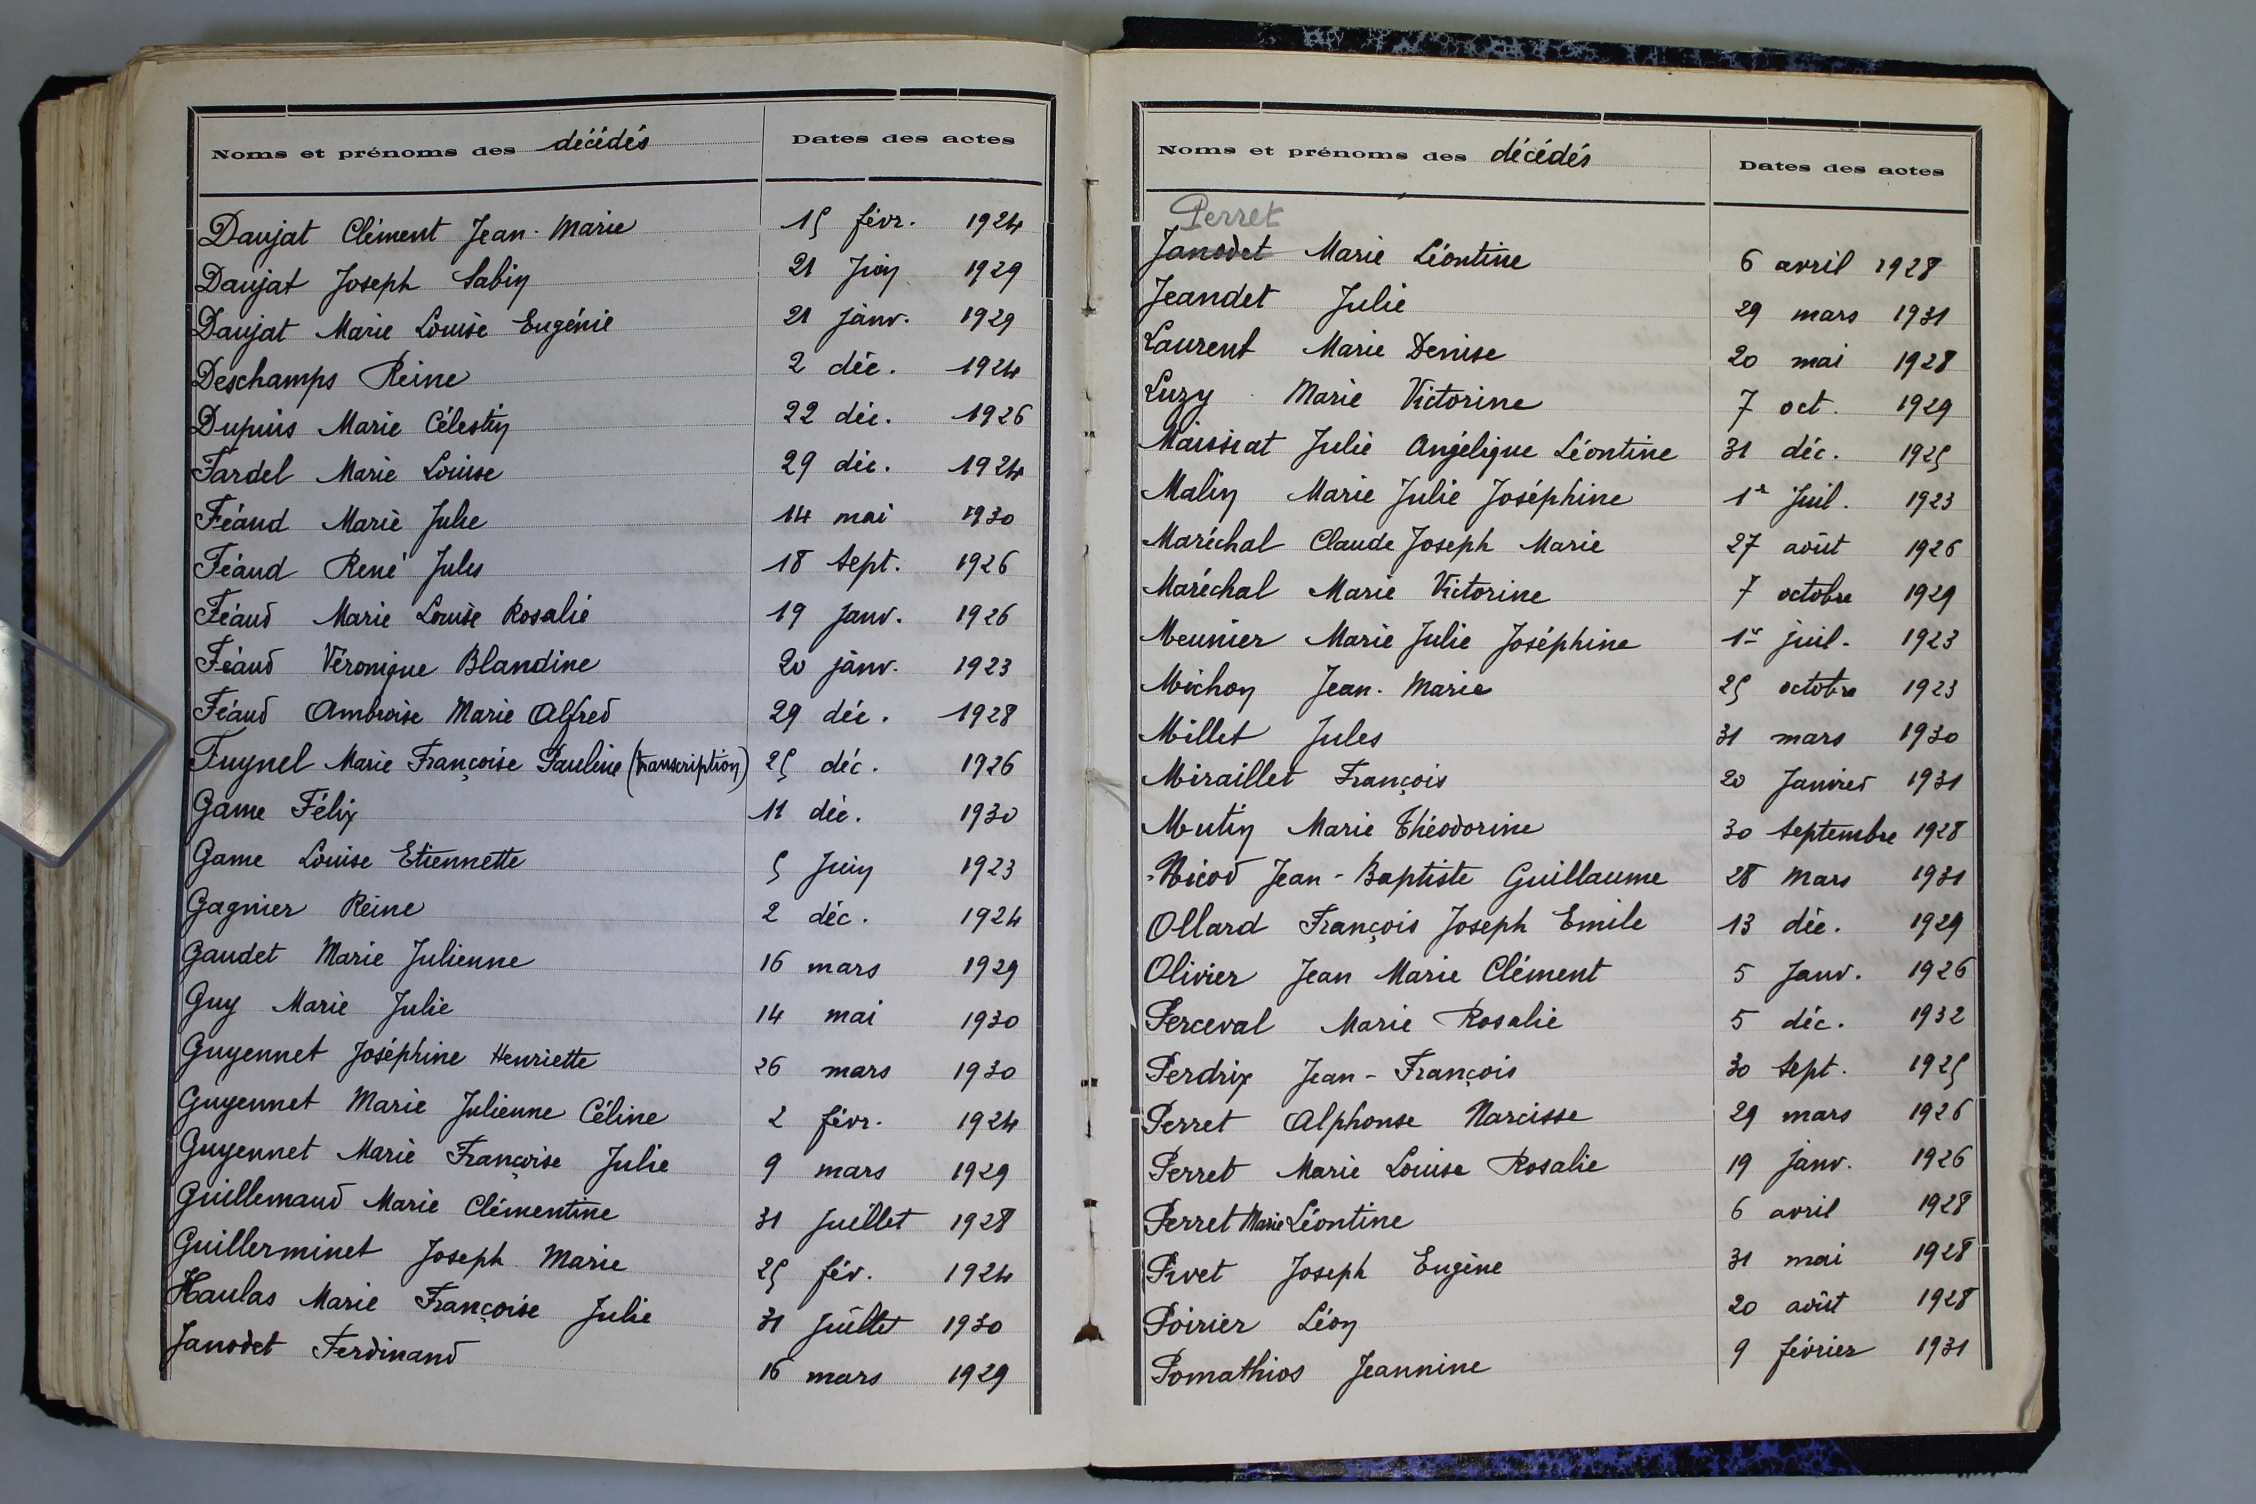 Noms et prénoms des décédés Dates des actes
Daujat Clément Jean-Marie 15 févr. 1924
Daujat Joseph Sabin 21 Juin 1929
Daujat Marie Louise Eugénie 21 janv. 1929
Deschamps Reine 2 déc. 1924
Dupuis Marie Célestin 22 déc. 1926
Fardel Marie Louise 29 déc. 1924
Féaud Marie Julie 14 mai 1930
Féaud René Jules 18 Sept. 1926
Féaud Marie Louise Rosalie 19 janv. 1926
Féaud Véronique Blandine 20 janv. 1923
Féaud Ambroise Marie Alfred 29 déc. 1928
Fuynel Marie Françoise Pauline (transcription) 25 déc. 1926
Game Félix 11 déc. 1930
Game Louise Etiennette 5 Juin 1923
Gagnier Reine 2 déc. 1924
Gaudet Marie Julienne 16 mars 1929
Guy Marie Julie 14 mai 1930
Guyennet Joséphine Henriette 26 mars 1930
Guyennet Marie Julienne Céline 2 févr. 1924
Guyennet Marie Françoise Julie 9 mars 1929
Guillemaud Marie Clémentine 31 Juillet 1928
Guillerminet Joseph Marie 25 fév. 1924
Haulas Marie Françoise Julie 31 Juillet 1930
Janodet Ferdinand 16 mars 1929
Noms et prénoms des décédés Dates des actes
Perret
Janodet Marie Léontine 6 avril 1928
Jeandet Julie 29 mars 1931
Laurent Marie Denise 20 mai 1928
Luzy Marie Victorine 7 oct. 1929
Maissiat Julie Angélique Léontine 31 déc. 1925
Malin Marie Julie Joséphine 1er Juil. 1923
Maréchal Claude Joseph Marie 27 août 1926
Maréchal Marie Victorine 7 octobre 1929
Meunier Marie Julie Joséphine 1er juil. 1923
Michon Jean-Marie 25 octobre 1923
Millet Jules 31 mars 1930
Miraillet François 20 Janvier 1931
Mutin Marie Théodorine 30 Septembre 1928
Nicod Jean-Baptiste Guillaume 28 Mars 1931
Ollard François Joseph Emile 13 déc. 1929
Olivier Jean Marie Clément 5 Janv. 1926
Perceval Marie Rosalie 5 déc. 1932
Perdrix Jean-François 30 Sept. 1925
Perret Alphonse Narcisse 29 mars 1926
Perret Marie Louise Rosalie 19 Janv. 1926
Perret Marie Léontine 6 avril 1928
Pivet Joseph Eugène 31 mai 1928
Poirier Léon 20 août 1928
Pomathios Jeannine 9 février 1931